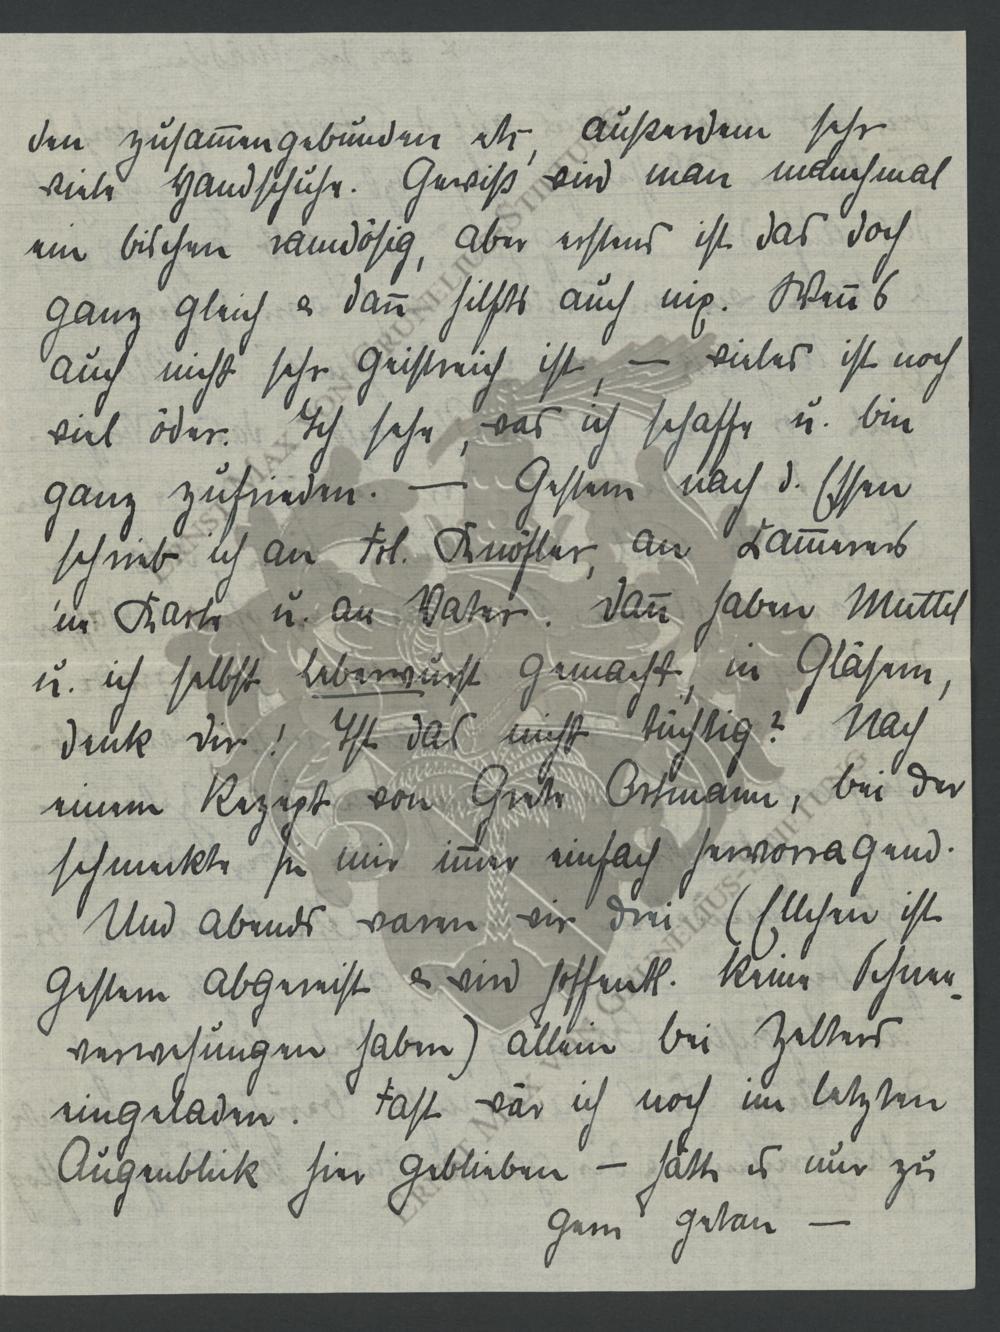 den zusam̅engebunden etc, außerdem sehr
viele Handschuhe. Gewiß wird man manchmal
ein bischen ramdösig, aber erstens ist das doch
ganz gleich & dan̅ hilfts auch nix. Wen̅s
auch nicht sehr geistreich ist, — vieles ist noch
viel öder. Ich sehe, was ich schaffe u. bin
ganz zufrieden. — Gestern nach d. Essen
schrieb ich an Frl. Knöfler, an Lam̅erers
'ne Karte u. an Vater. Dan̅ haben Muttel
u. ich selbst Leberwurst gemacht, in Gläsern,
denk dir! Ist das nicht tüchtig? Nach
einem Rezept von Grete Ortmann, bei der
schmeckte sie mir im̅er einfach hervorragend.
Und abends waren wir drei (Ellchen ist
gestern abgereist & wird hoffentl. keine Schnee-
verwehungen haben) allein bei Zelters
eingeladen. Fast wär ich noch im letzten
Augenblick hier geblieben — hätte es nur zu
gern getan —
ERNST MAX VON GRUNELIUS-STIFTUNG
ERNST MAX VON GRUNELIUS-STIFTUNG